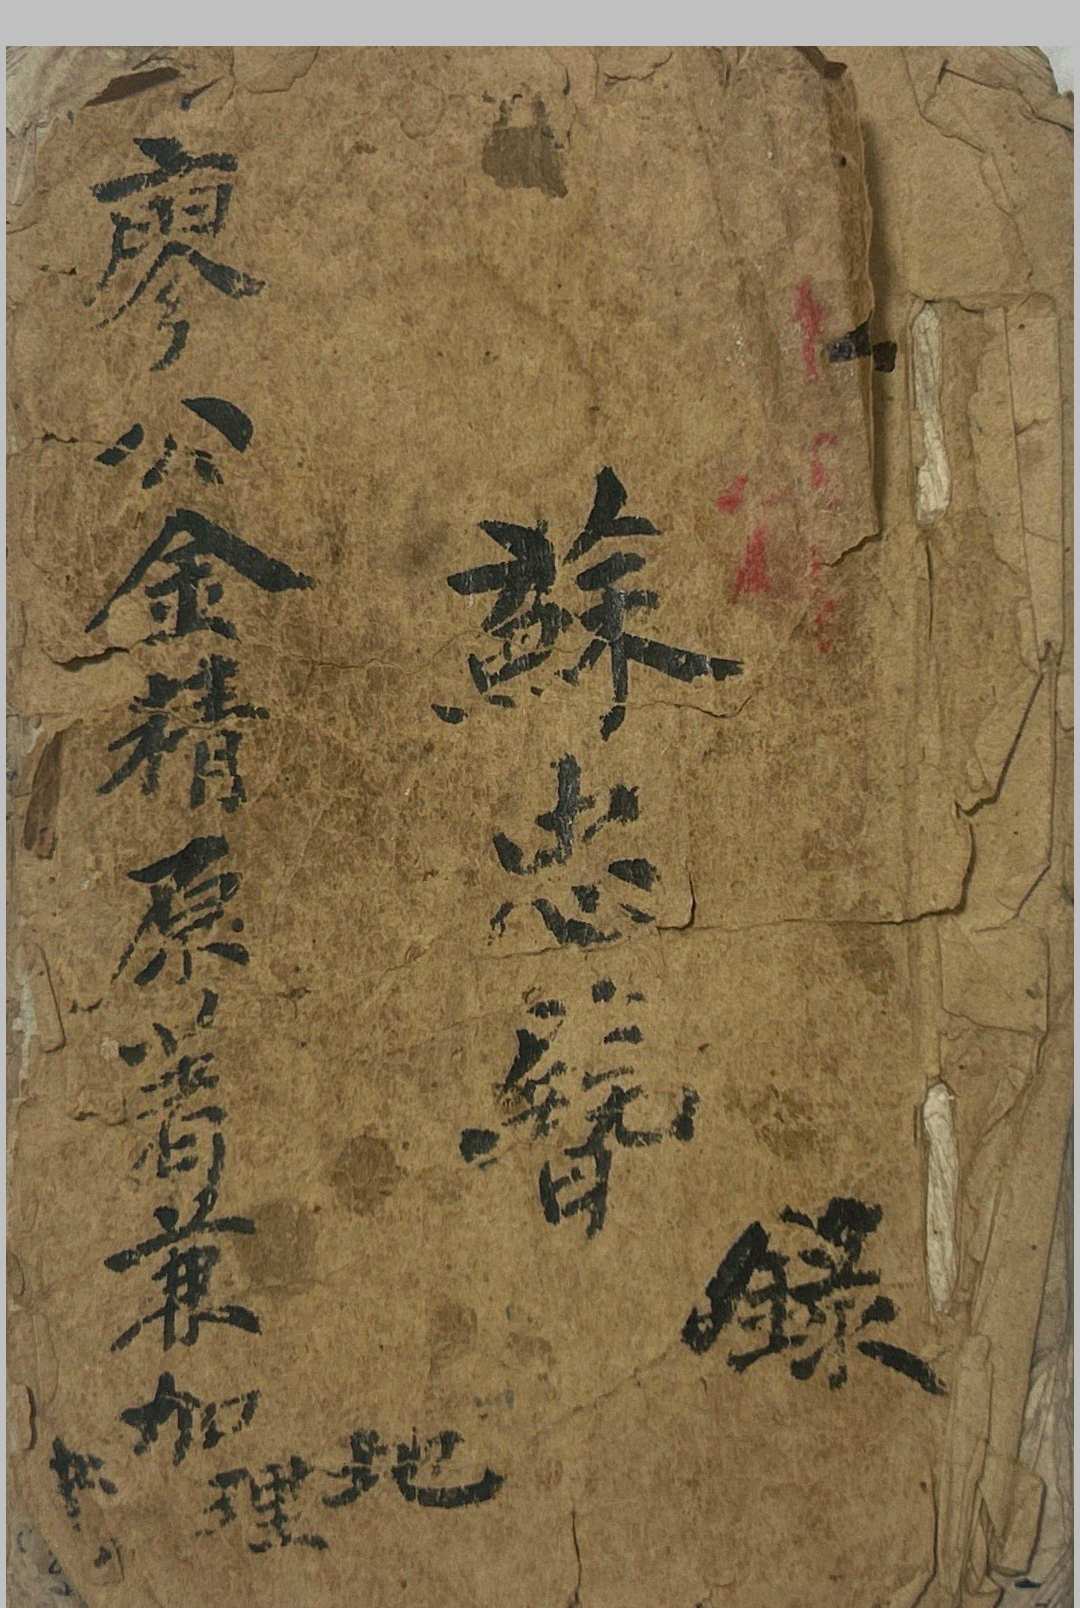 錄
蘇忠賢
廖公金精原著兼加
地理